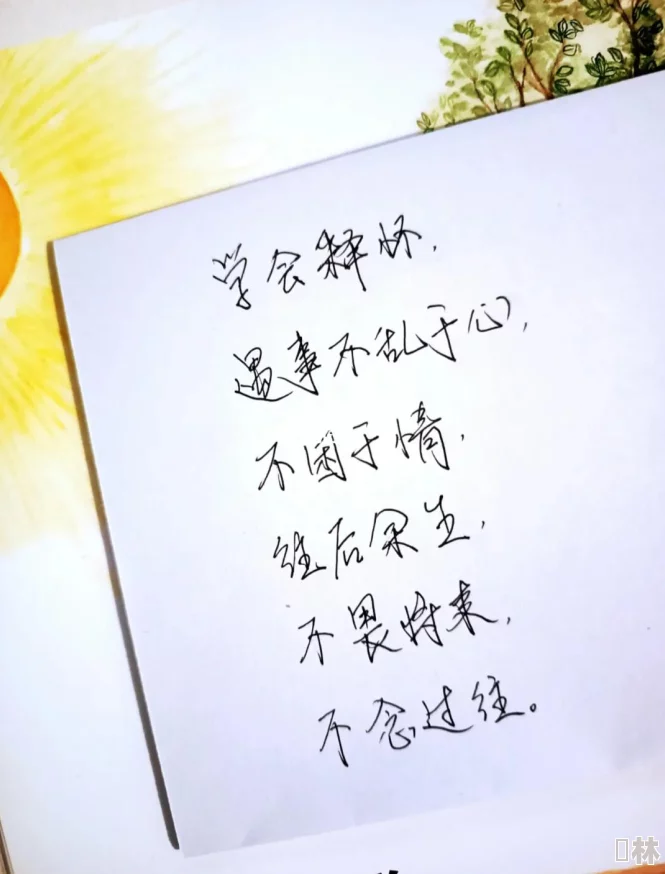 学会释怀，
遇事不乱于心，
不困于情，
往后余生，
不畏将来，
不念过往。
林